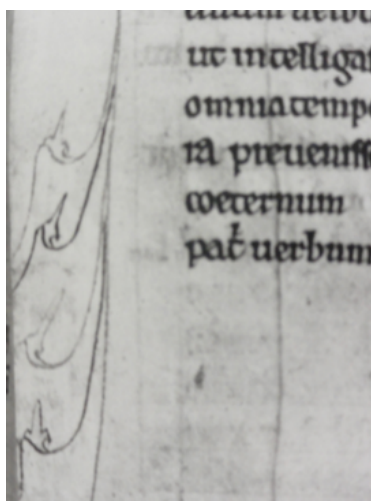 ut intelliga
omnia temp
ra preueniss
coeternum
pat̄ uerbum